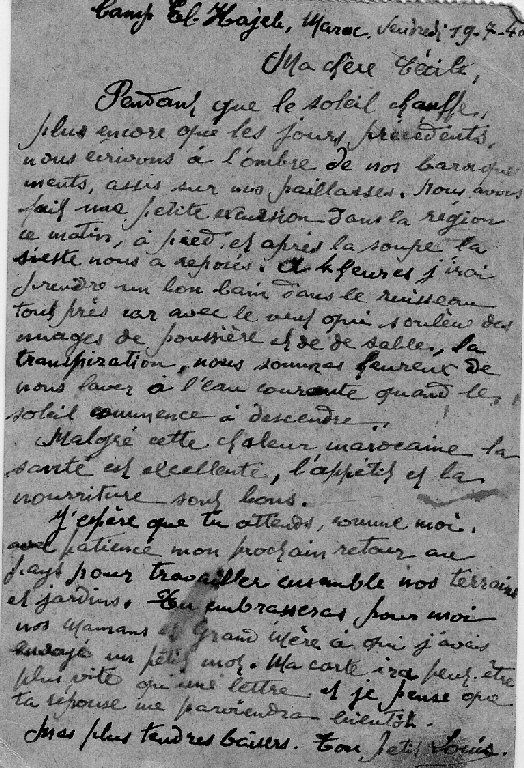 Camp El Hajeb, Maroc, Vendredi 19-7-40
Ma chère Cécile,
Pendant que le soleil chauffe,
plus encore que les jours précédents,
nous écrivons à l'ombre de nos baraque
ments, assis sur nos paillasses. Nous avons
fait une petite excursion dans la région
ce matin, à pied, et après la soupe la
sieste nous a reposés. A heures j'irai
prendre un bon bain dans le ruisseau
tout près car avec le vent qui soulève des
nuages de poussière et de de sable, la
transpiration, nous sommes heureux de
nous laver à l'eau courante quand le
soleil commence à descendre.
Malgré cette chaleur marocaine la
santé est excellente, l'appétit et la
nourriture sont bons.
J'espère que tu attends, comme moi,
avec patience mon prochain retour au
pays pour travailler ensemble nos terrains
et jardins. Tu embrasseras pour moi
nos mamans et Grand Mère à qui j'avais
envoyé un petit mot. Ma carte ira peut être
plus vite qu'une lettre et je pense que
ta réponse me parviendra bientôt.
Mes plus tendres baisers. Ton petit Louis.